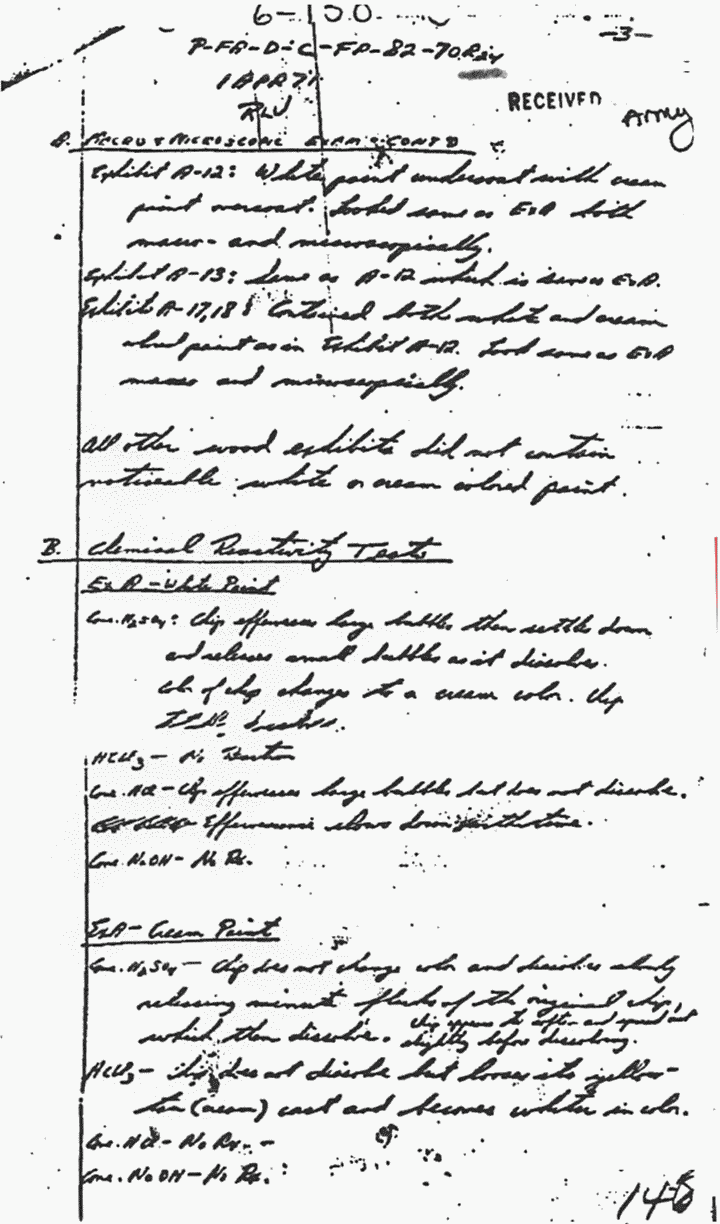 6-150
-3-
P-FA-D-C-FP-82-70-R24
1 APR 71
RLV
RECEIVED
Army
A. MACRO & MICROSCOPIC EXAM - CONT'D
Exhibit A-12: White paint undercoat with cream
paint overcoat. Looked same as Ex A both
macro- and microscopically.
Exhibit A-13: Same as A-12 which is same as Ex A.
Exhibit A-17,18: Contained both white and cream
colored paint as in Exhibit A-12. Look same as Ex A
macro and microscopically.
All other wood exhibits did not contain
noticeable white or cream colored paint.
B. Chemical Reactivity Tests
Ex A - White Paint
Conc. H2SO4: Chip effervesces large bubbles then settles down
and releases small bubbles as it dissolves.
Color of chip changes to a cream color. Chip
HCCl3 - No Reaction
Conc. HCl - Chip effervesces large bubbles but does not dissolve.
Effervescence slows down with time.
Conc. NaOH - No Rx.
Ex A - Cream Paint
Conc. H2SO4 - Chip does not change color and dissolves slowly
releasing minute flecks of the original chip,
which then dissolve. Chip appears to soften and spread out
slightly before dissolving.
HCCl3 - chip does not dissolve but looses its yellow-
tan (cream) cast and becomes whiter in color.
Conc. HCl - No Rx. -
Conc. NaOH - No Rx.
148